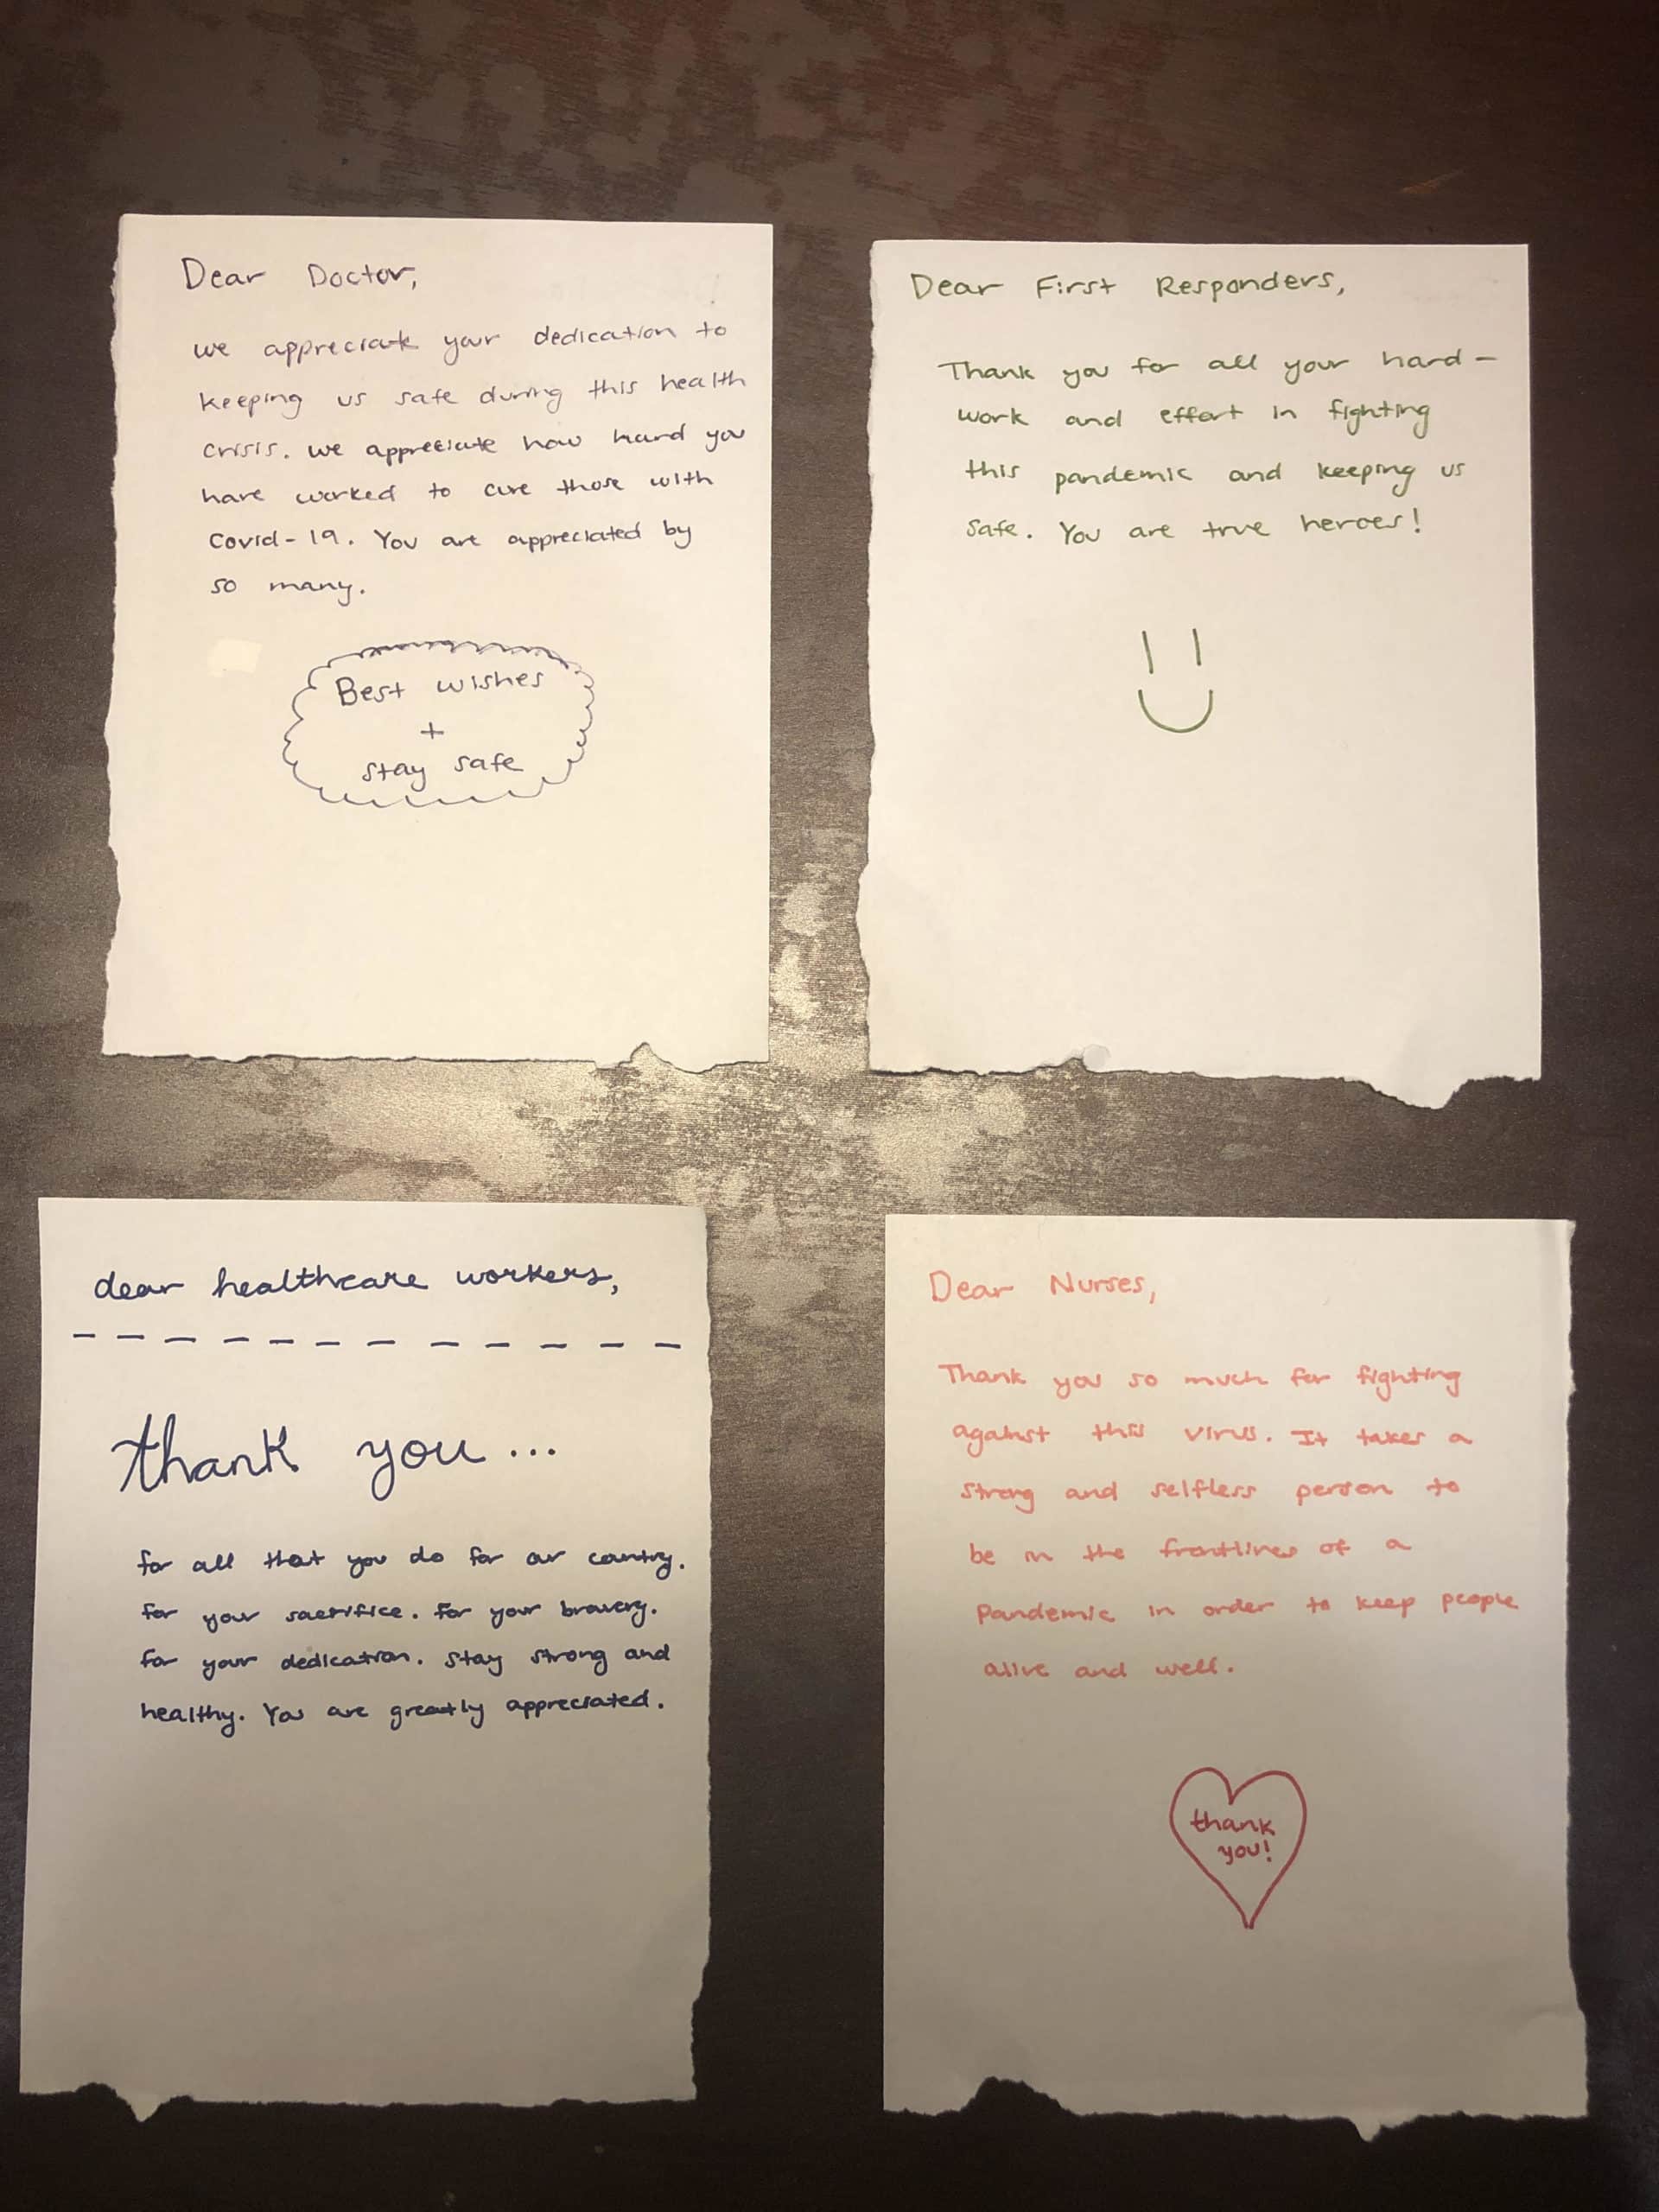 Dear Doctor,
we appreciate your dedication to
keeping us safe during this health
crisis. we appreciate how hard you
have worked to cure those with
Covid-19. You are appreciated by
so many.
Best wishes
+
stay safe
Dear First Responders,
Thank you for all your hard-
work and effort in fighting
this pandemic and keeping us
safe. You are true heroes!
dear healthcare workers,
thank you...
for all that you do for our country.
for your sacrifice. For your bravery.
for your dedication. Stay strong and
healthy. You are greatly appreciated.
Dear Nurses,
Thank you so much for fighting
against this virus. It takes a
strong and selfless person to
be in the frontlines of a
pandemic in order to keep people
alive and well.
thank
you!